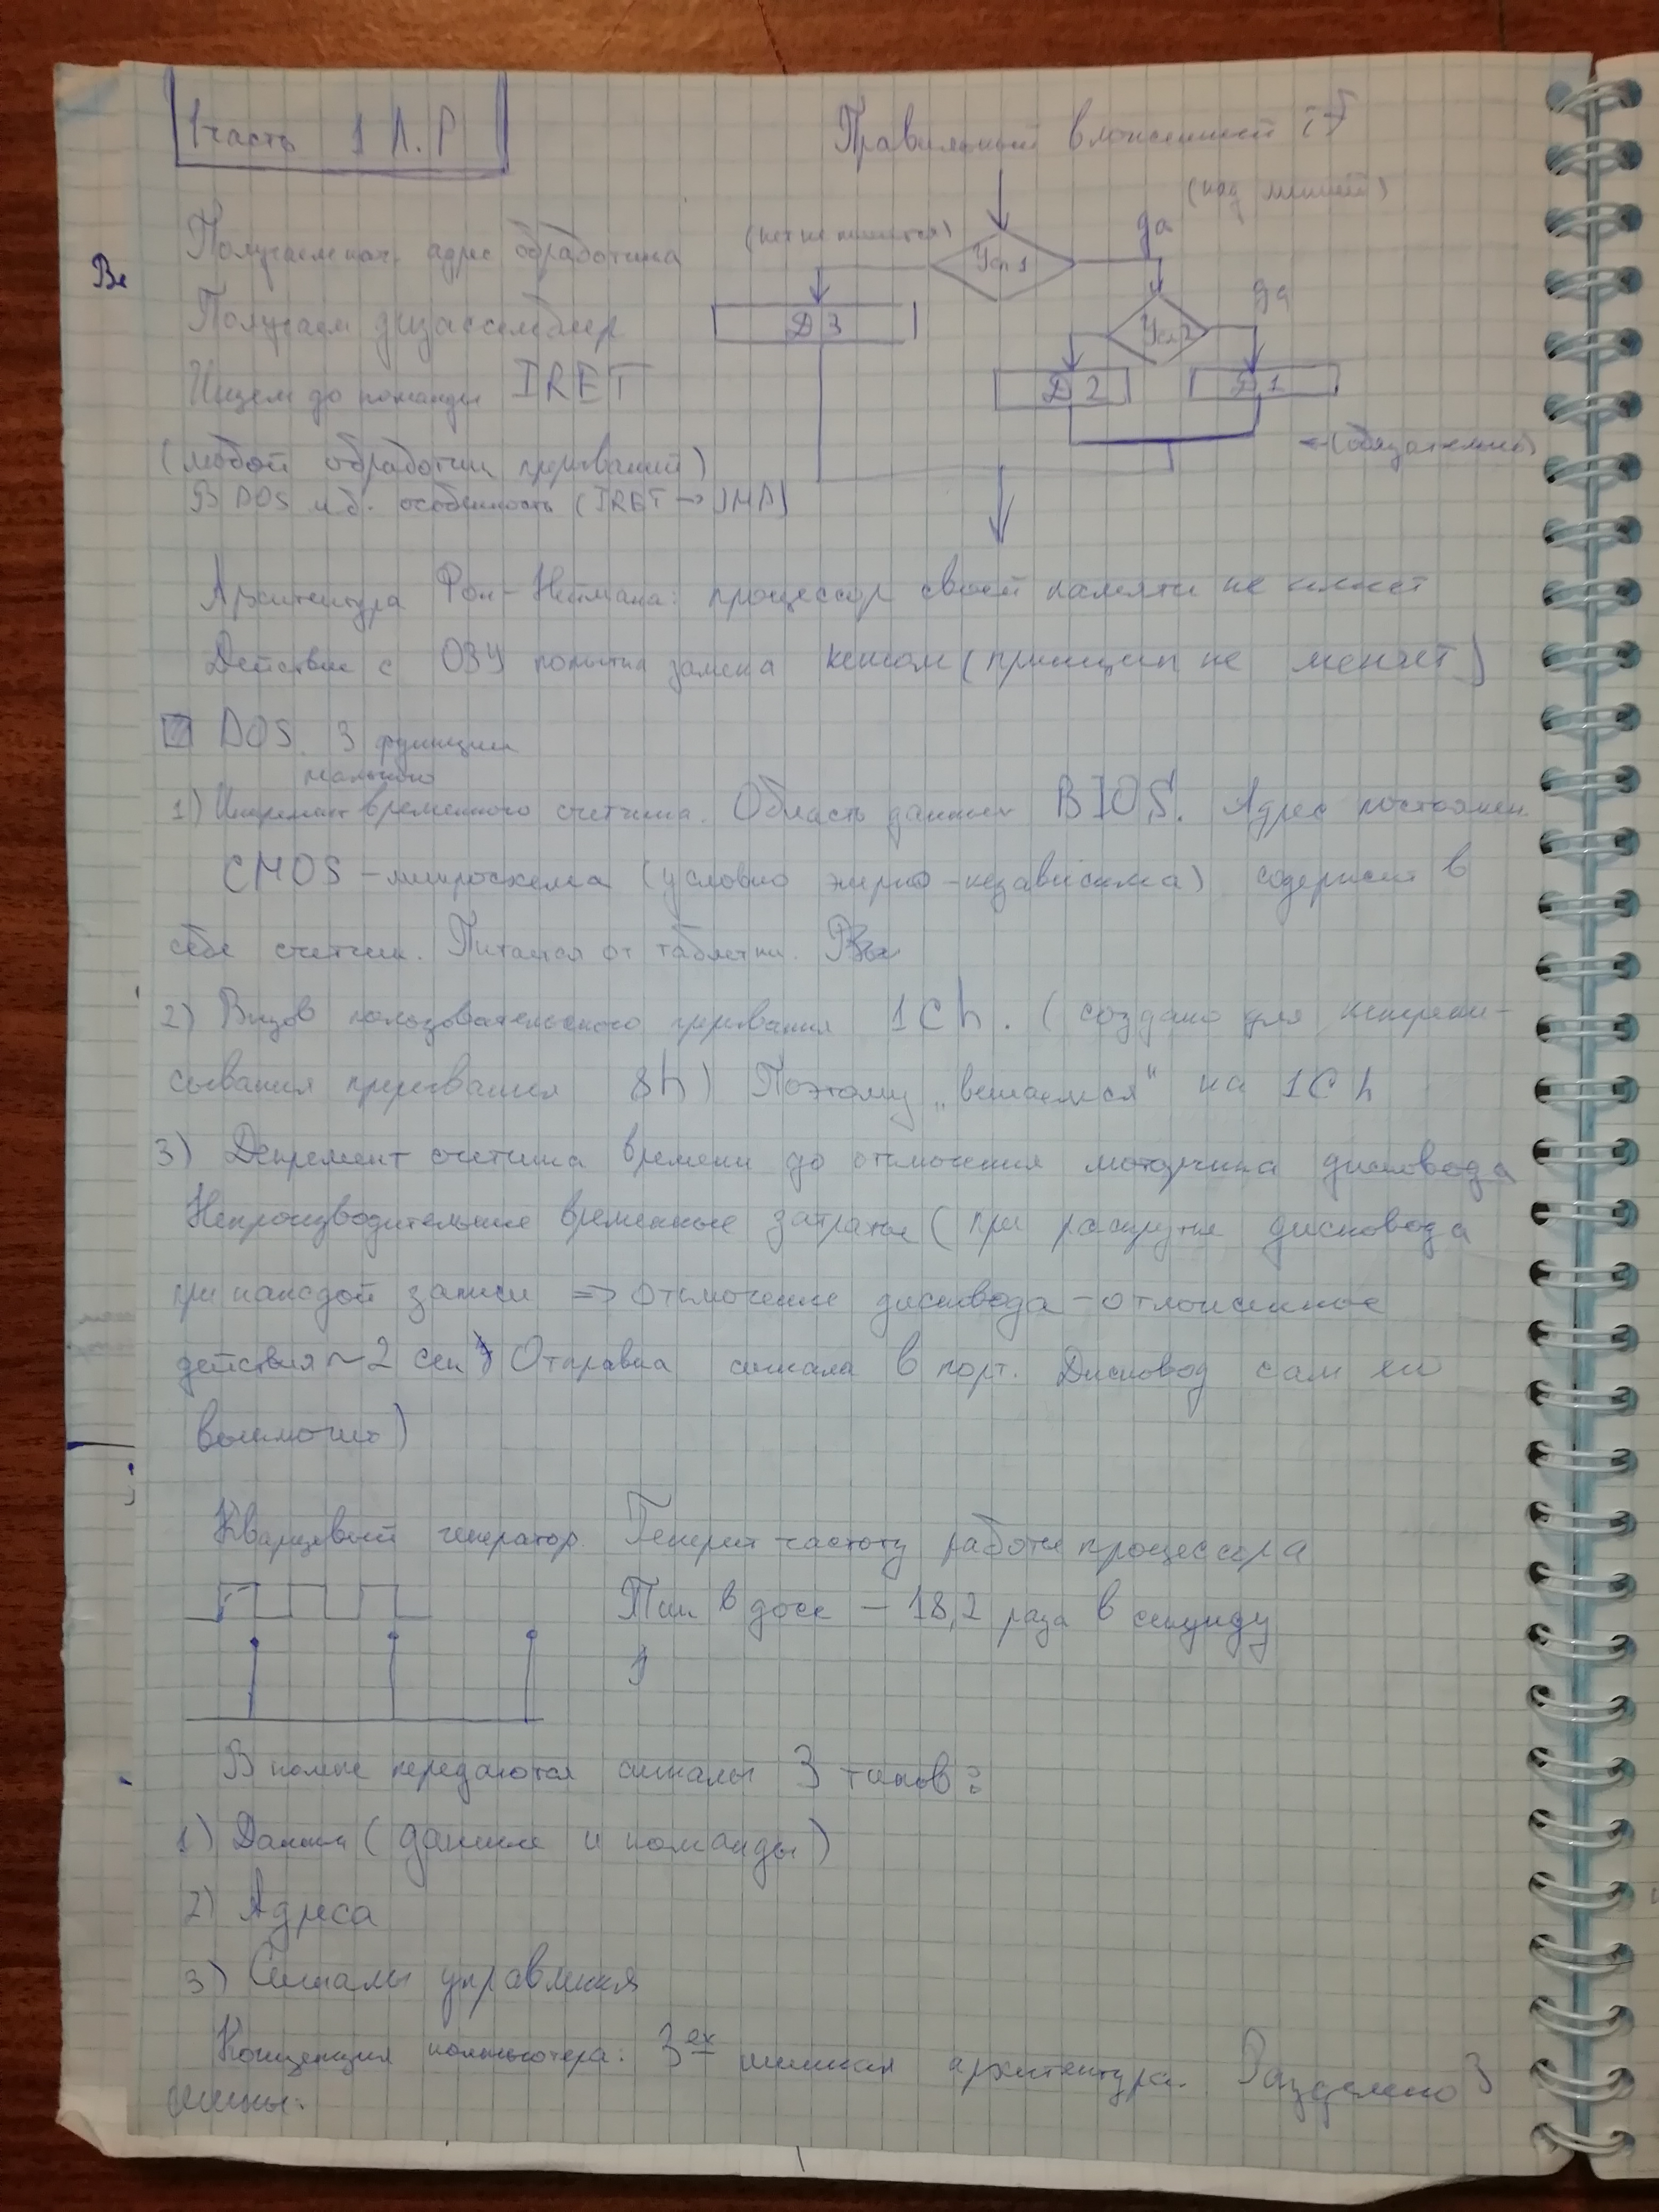 1 часть 1 Л.Р
Правильный вложенный if
(над линией)
(нет не пишется)
да
Усл 1
Ве
Получаем нач. адрес обработчика
да
Усл 2
Получаем дизассемблер
Д 3
Д 2
Д 1
Ищем до команды IRET
(обязательно)
(любой обработчик прерываний)
В DOS м.б. особенность (IRET → JMP)
Архитектура Фон-Неймана: процессор своей памяти не имеет
Действие с ОЗУ попытка замена кешом (принцип не меняет)
DOS. 3 функции
1) Инкремент временного счетчика. Область данных BIOS. Адрес постоянен
CMOS - микросхема (условно энерго-независима) содержит в
себе счетчик. Питается от таблетки.
2) Вызов пользовательского прерывания 1Ch. (создано для неперепи-
сывания прерывания 8h) Поэтому „вешаемся" на 1Ch
3) Декремент счетчика времени до отключения моторчика дисковода
Непроизводительные временные затраты (при раскрутке дисковода
при каждой записи => отключение дисковода - отложенное
действия ~2 сек Отправка сигнала в порт. Дисковод сам не
выключит)
Кварцевый генератор. Генерит частоту работы процессора
Тик в досе - 18,2 раза в секунду
В компе передаются сигналы 3 типов:
1) Данные (данные и команды)
2) Адреса
3) Сигналы управления
Концепция компьютера: 3ех шинная архитектура. Разделено 3
шины: